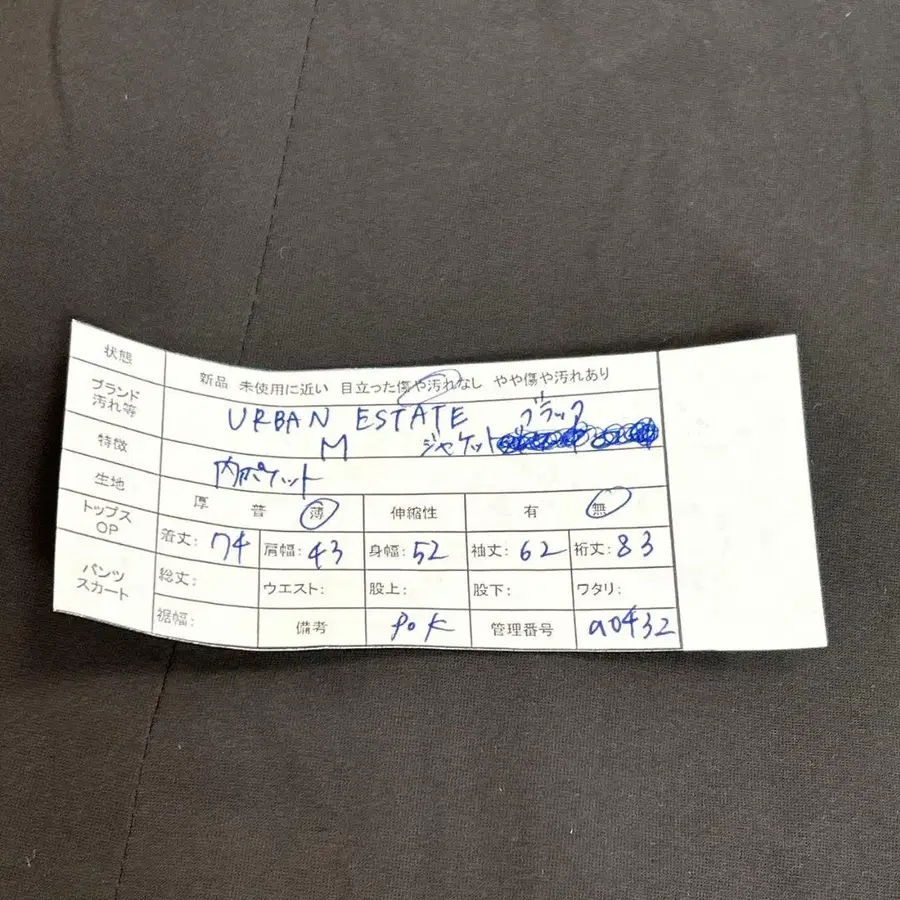 状態 新品 未使用に近い 目立った傷や汚れなし やや傷や汚れあり
ブランド 汚れ等 URBAN ESTATE ブラック
M ジャケット
特徴 内ポケット
生地 厚 普 薄 伸縮性 有 無
トップス OP 着丈: 74 肩幅: 43 身幅: 52 袖丈: 62 裄丈: 83
パンツ スカート 総丈: ウエスト: 股上: 股下: ワタリ:
裾幅: 備考 POK 管理番号 a0432